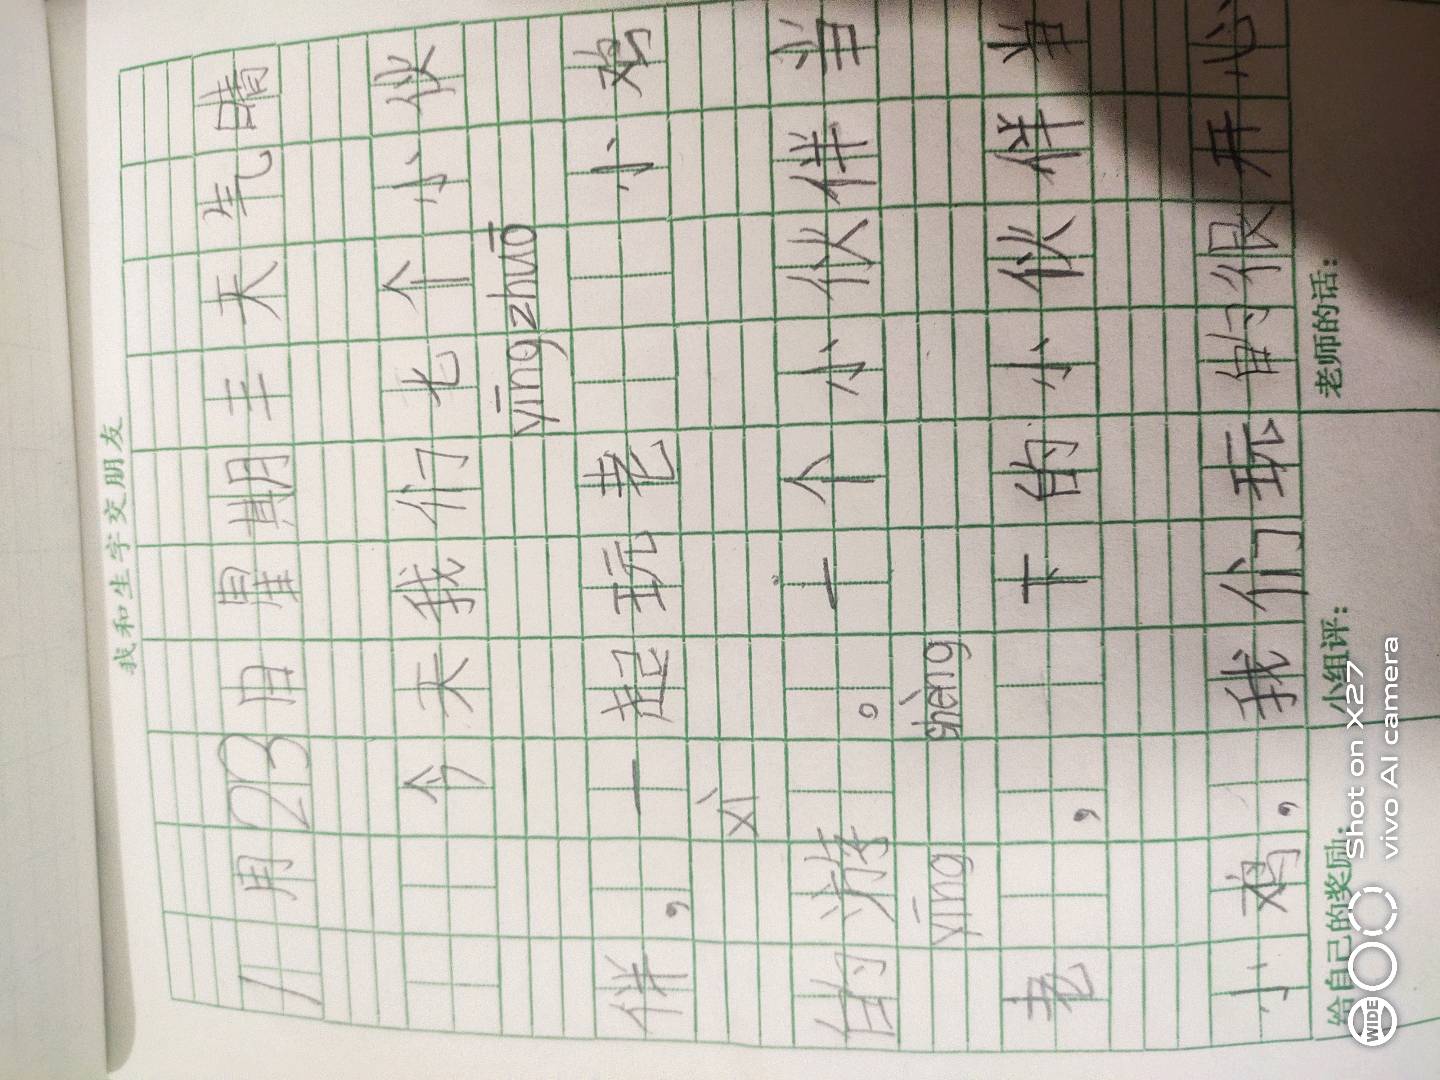 我和生字交朋友
11月23日星期三天气晴
今天我们七个小伙
yīng zhuō
伴,一起玩老 小鸡
xì
的游 。一个小伙伴当
yīng shèng
老 ,下的小伙伴当
小鸡,我们玩的很开心
给自己的奖励: 小组评: 老师的话:
WIDE
Shot on X27
vivo AI camera